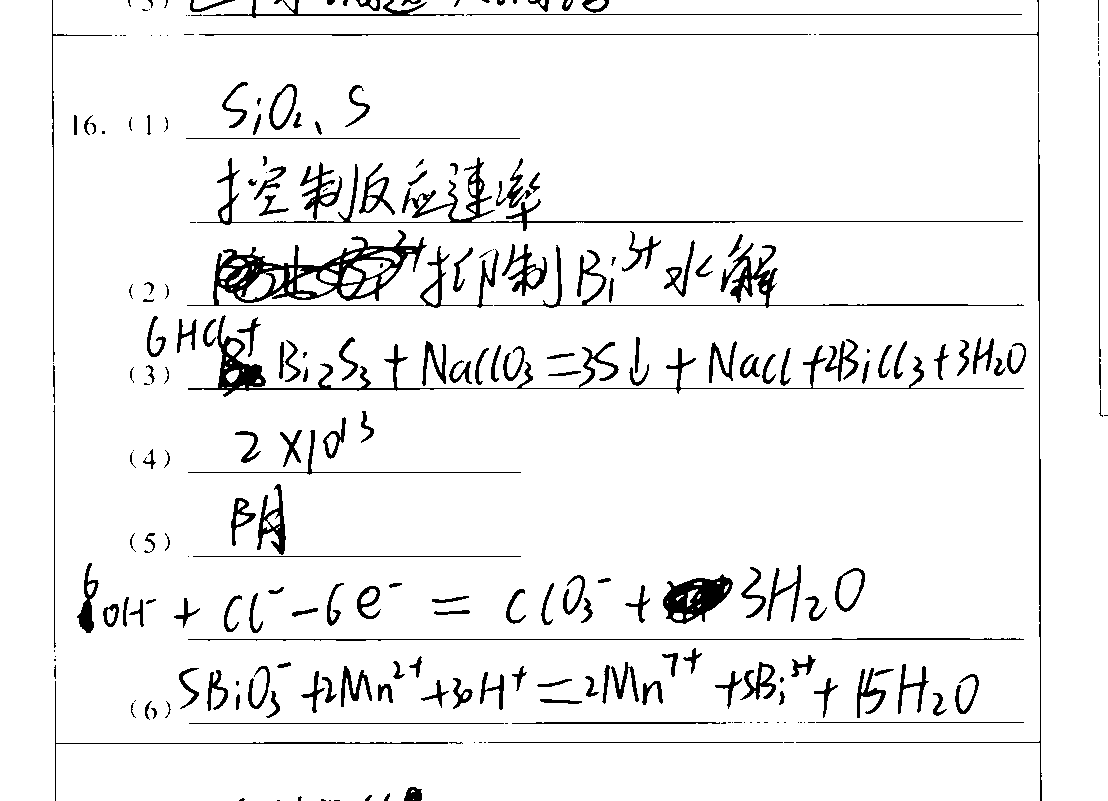 16.（1） SiO₂、S
控制反应速率
（2） 抑制Bi³⁺水解
6HCl+
（3） Bi₂S₃+NaClO₃=3S↓+NaCl+2BiCl₃+3H₂O
（4） 2×10¹³
（5） 阴
6OH⁻+Cl⁻-6e⁻=ClO₃⁻+3H₂O
（6） 5BiO₃⁻+2Mn²⁺+30H⁺=2Mn⁷⁺+5Bi³⁺+15H₂O